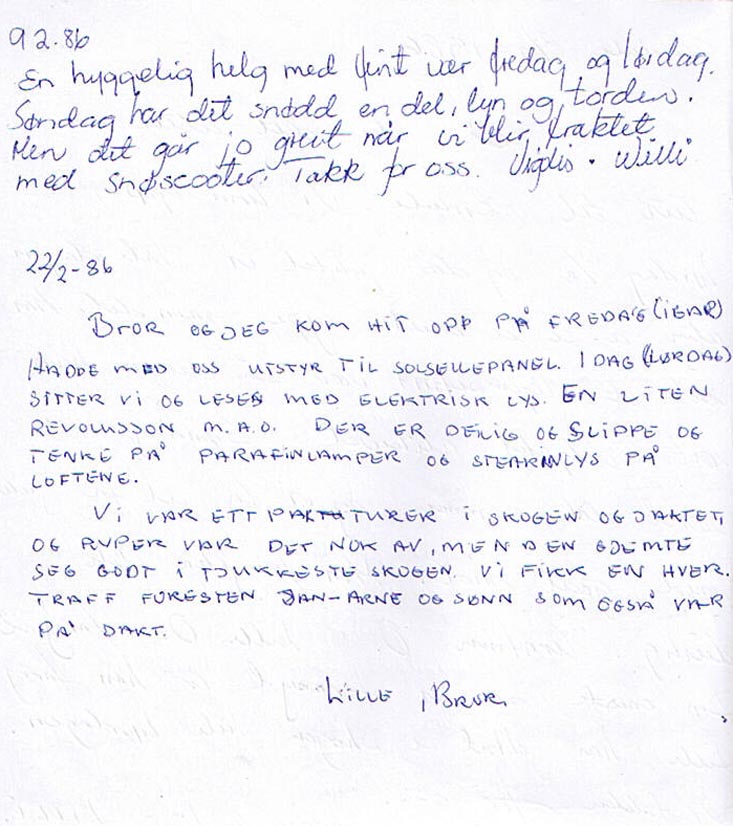 9 2.86
En hyggelig helg med fint vær fredag og lørdag.
Søndag har det snødd en del, lyn og torden.
Men det går jo greit når vi blir fraktet
med snøscooter. Takk for oss. Vigdis · Willi
22/2-86
BROR OG JEG KOM HIT OPP PÅ FREDAG (IGÅR)
HADDE MED OSS UTSTYR TIL SOLSELLEPANEL. I DAG (LØRDAG)
SITTER VI OG LESES MED ELEKTRISK LYS. EN LITEN
REVOLUSSON M.A.O. DER ER DEILIG OG SLIPPE OG
TENKE PÅ PARAFINLAMPER OG STEARINLYS PÅ
LOFTENE.
VI VAR ETT PAR TURER I SKOGEN OG JAKTET,
OG RYPER VAR DET NOK AV, MEN DEN GJEMTE
SEG GODT I TJUKKESTE SKOGEN. VI FIKK EN HVER.
TRAFF FORESTEN JAN-ARNE OG SØNN SOM OGSÅ VAR
PÅ JAKT.
LILLE, BROR.